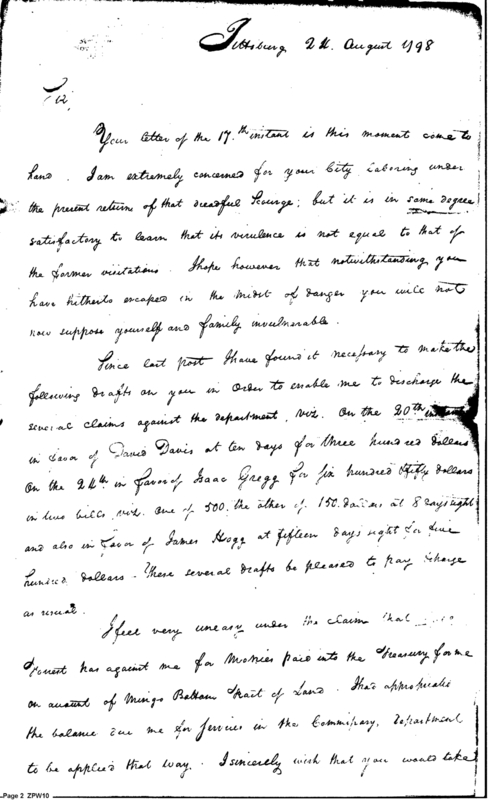 Pittsburg 24. August 1798
Sir,
Your letter of the 17.th instant is this moment come to
hand. I am extremely concerned for your City laboring under
the present return of that dreadful Scourge; but it is in some degree
satisfactory to learn that its virulence is not equal to that of
the former visitations. I hope however that notwithstanding you
have hitherto escaped in the midst of danger you will not
now suppose yourself and family invulnerable.
Since last post I have found it necessary to make the
following drafts on you in order to enable me to discharge the
several claims against the department, viz. On the 20th instant
in favor of David Davis at ten days for three hundred dollars
On the 24th in favor of Isaac Gregg for six hundred & fifty dollars
in two bills, viz. one of 500. the other of 150. dollars at 8 days sight
and also in favor of James Hogg at fifteen days sight for five
hundred dollars. These several drafts be pleased to pay & charge
as usual.
I feel very uneasy under the claim that
Forrest has against me for Monies paid into the Treasury for me
on account of Mingo Bottom Tract of Land. I had appropriated
the balance due me for Services in the Commissary. Department
to be applied that way. I sincerely wish that you would take
Page 2 ZPW10